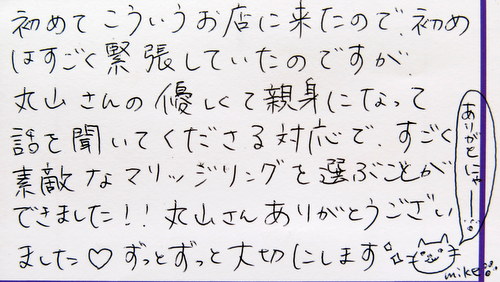 初めて こういうお店に来たので、初め
はすごく緊張していたのですが、
丸山さんの優しくて親身になって
話を聞いてくださる対応で、すごく
素敵なマリッジリングを選ぶことが
できました!!丸山さんありがとうござい
ました♡ずっとずっと大切にします
ありがとにゃー!!
mike